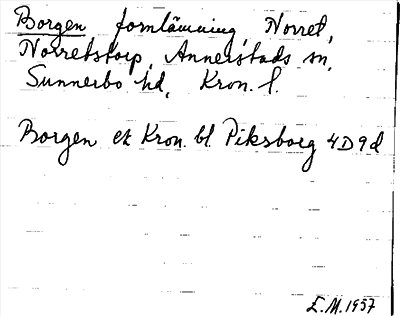 Borgen fornlämning, Norret,
Norretstorp, Annerstads sn,
Sunnerbo hd, Kron. l.
Borgen ek Kron. bl. Piksborg 4D9d
E.M. 1957